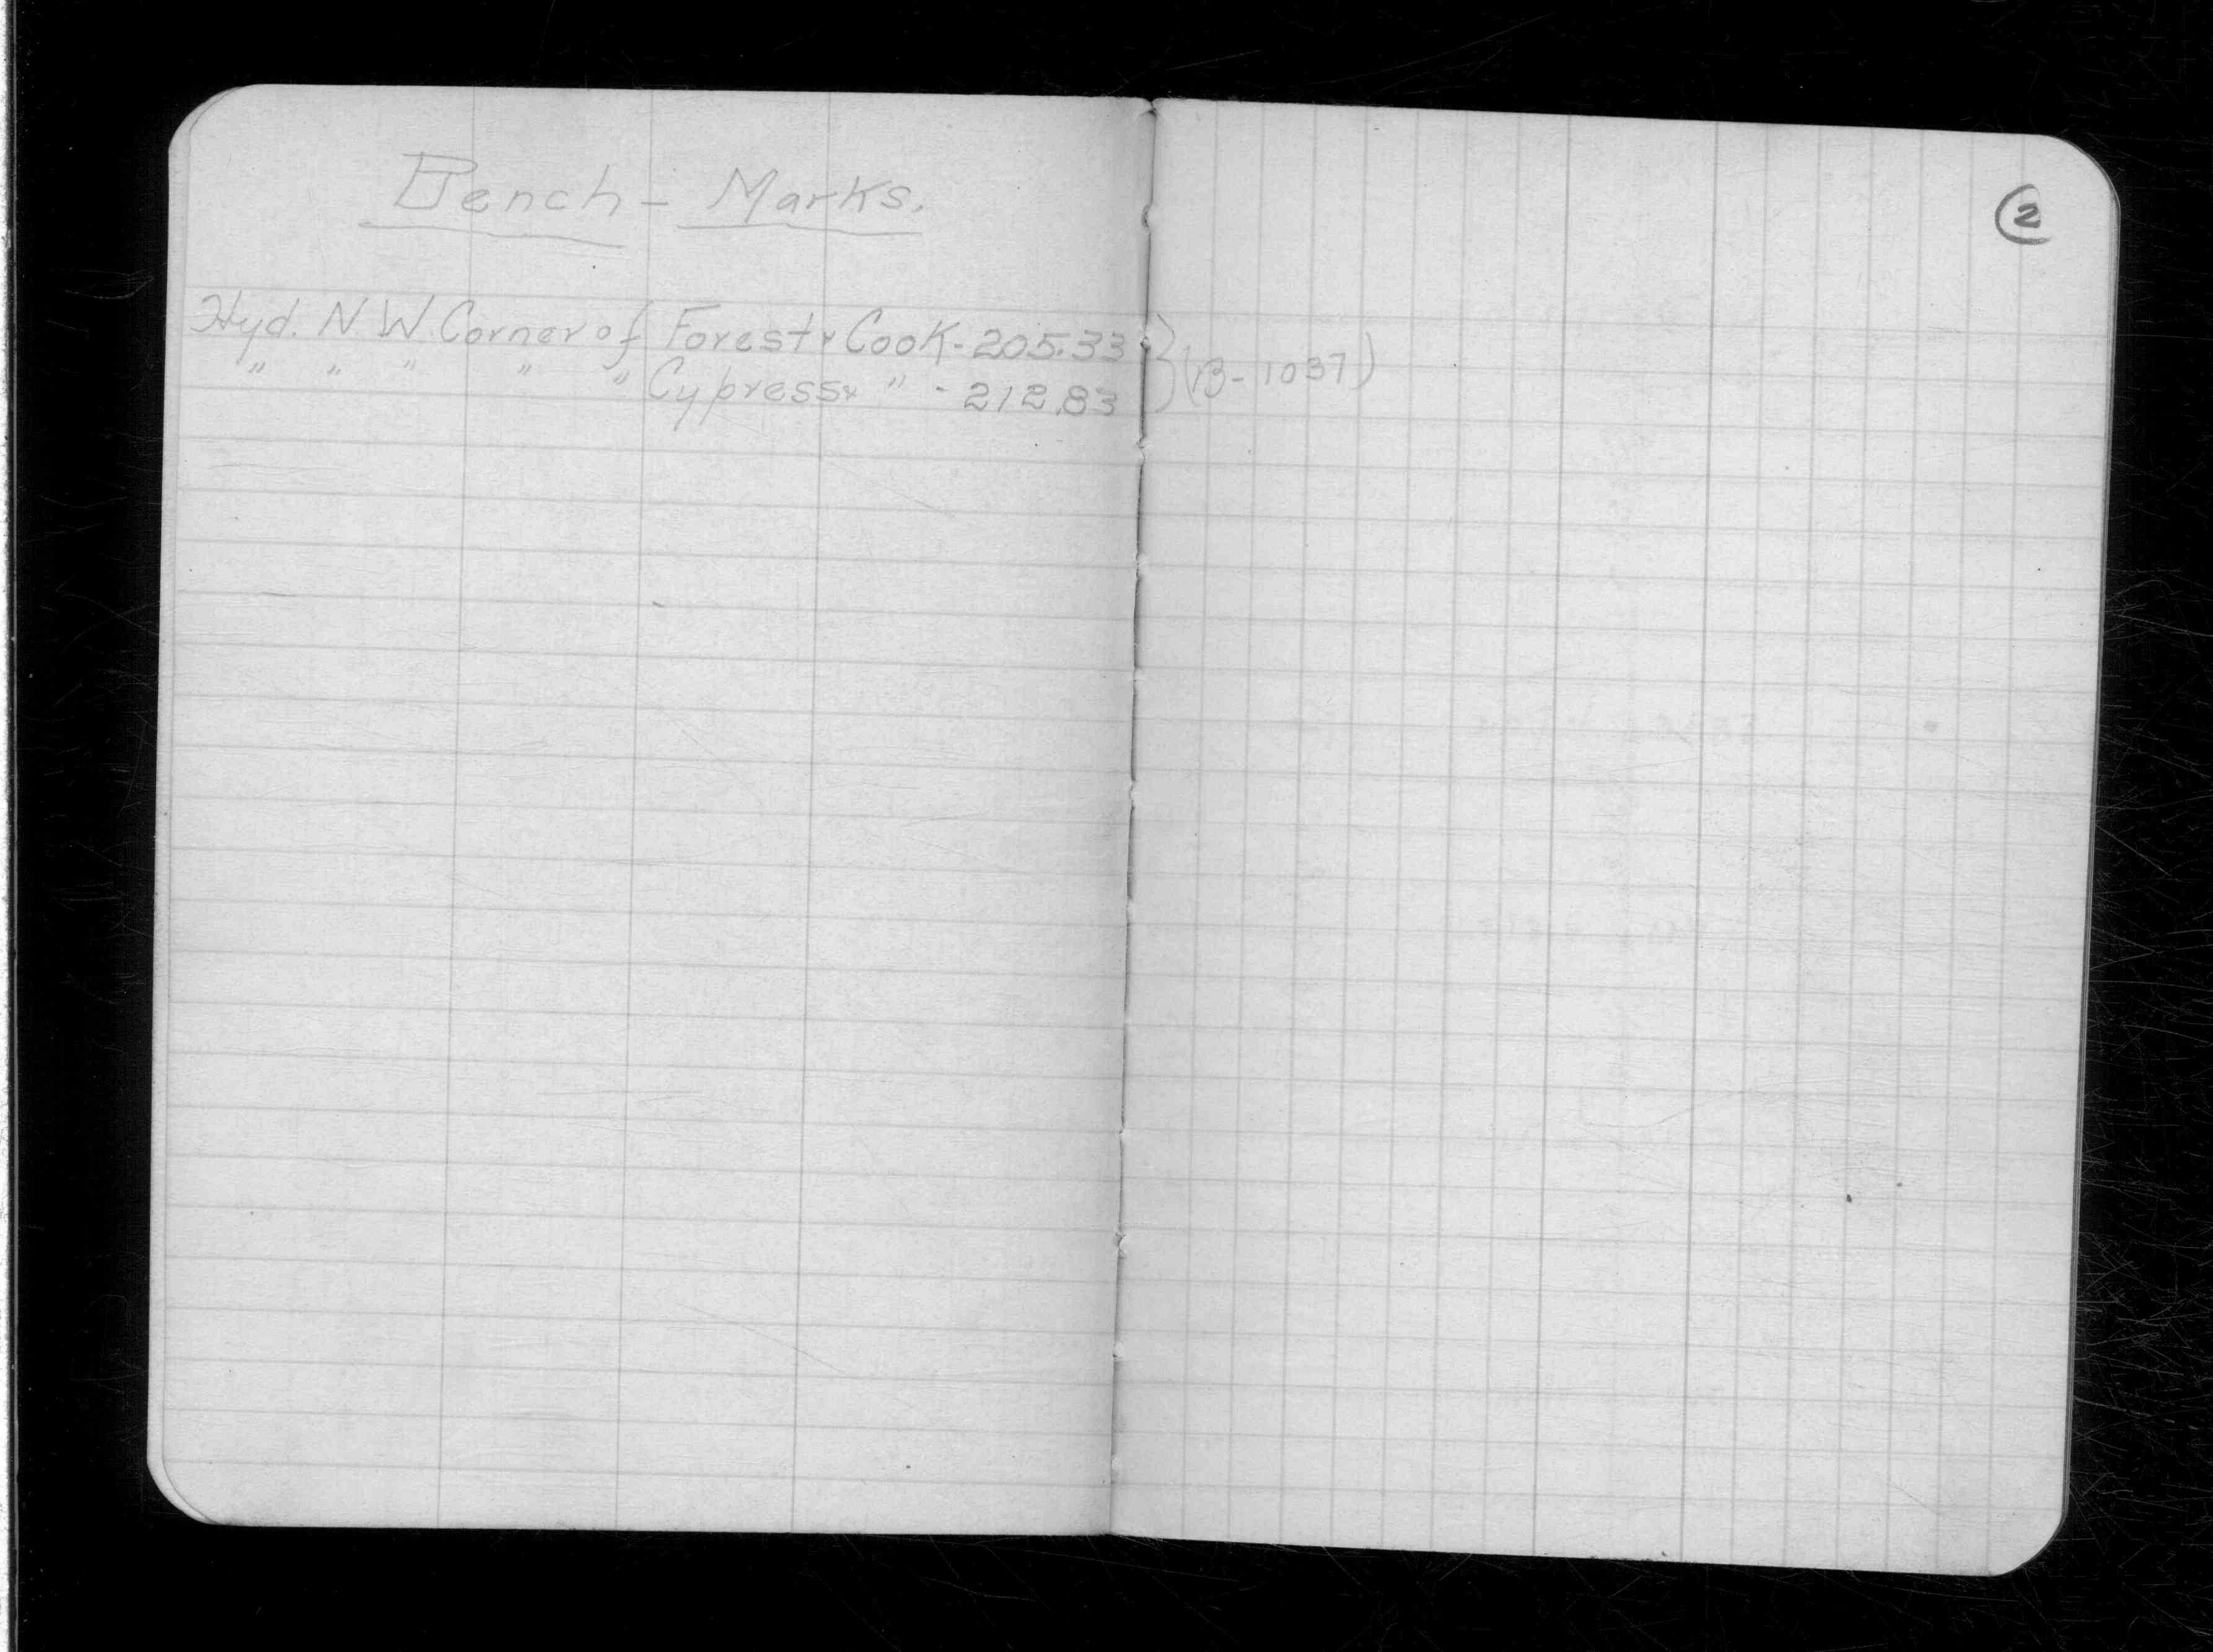 Bench - Marks.
2
Hyd. N. W. Corner of Forest & Cook - 205.33 } (B-1037)
" " " " " Cypress & " - 212.83